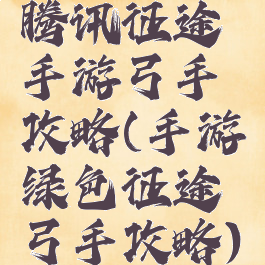 腾讯征途
手游弓手
攻略(手游
绿色征途
弓手攻略)